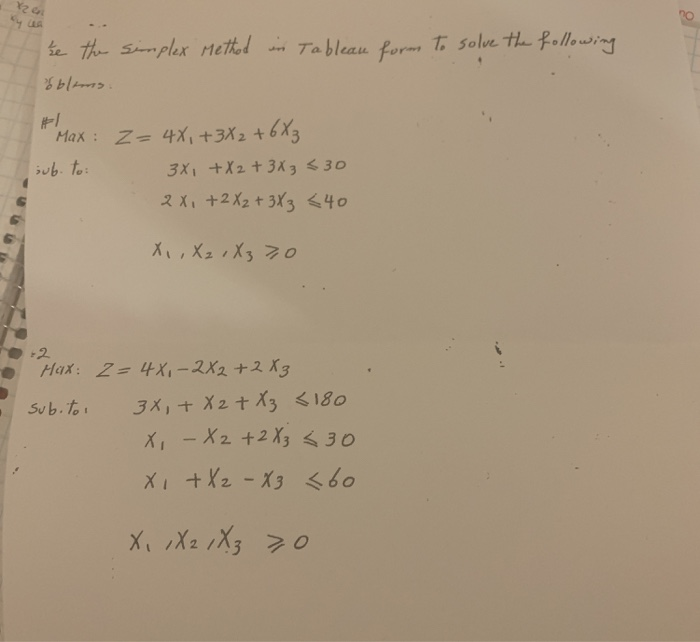 the simplex Method in Tableau form To solve the following
#1
Max: Z = 4X₁ + 3X₂ + 6X₃
sub. to: 3X₁ + X₂ + 3X₃ ≤ 30
2X₁ + 2X₂ + 3X₃ ≤ 40
X₁, X₂, X₃ ≥ 0
2
Max: Z = 4X₁ - 2X₂ + 2X₃
Sub. to: 3X₁ + X₂ + X₃ ≤ 180
X₁ - X₂ + 2X₃ ≤ 30
X₁ + X₂ - X₃ ≤ 60
X₁, X₂, X₃ ≥ 0